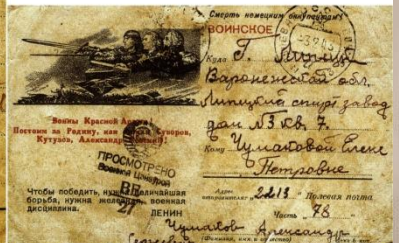 Смерть немецким оккупантам
ВОИНСКОЕ
Куда г.
Воронежской обл.
Липецкий спирт завод
дом №3 кв. 7.
Кому Чумаковой Елене
Петровне
Воины Красной Армии!
Постоим за Родину, как Суворов,
Кутузов, Александр
ПРОСМОТРЕНО
Военной Цензурой
21
Чтобы победить, нужна величайшая
борьба, нужна железная, военная
дисциплина.
ЛЕНИН
Адрес
отправителя: 2213 Полевая почта
Часть 78
Чумаков Александр